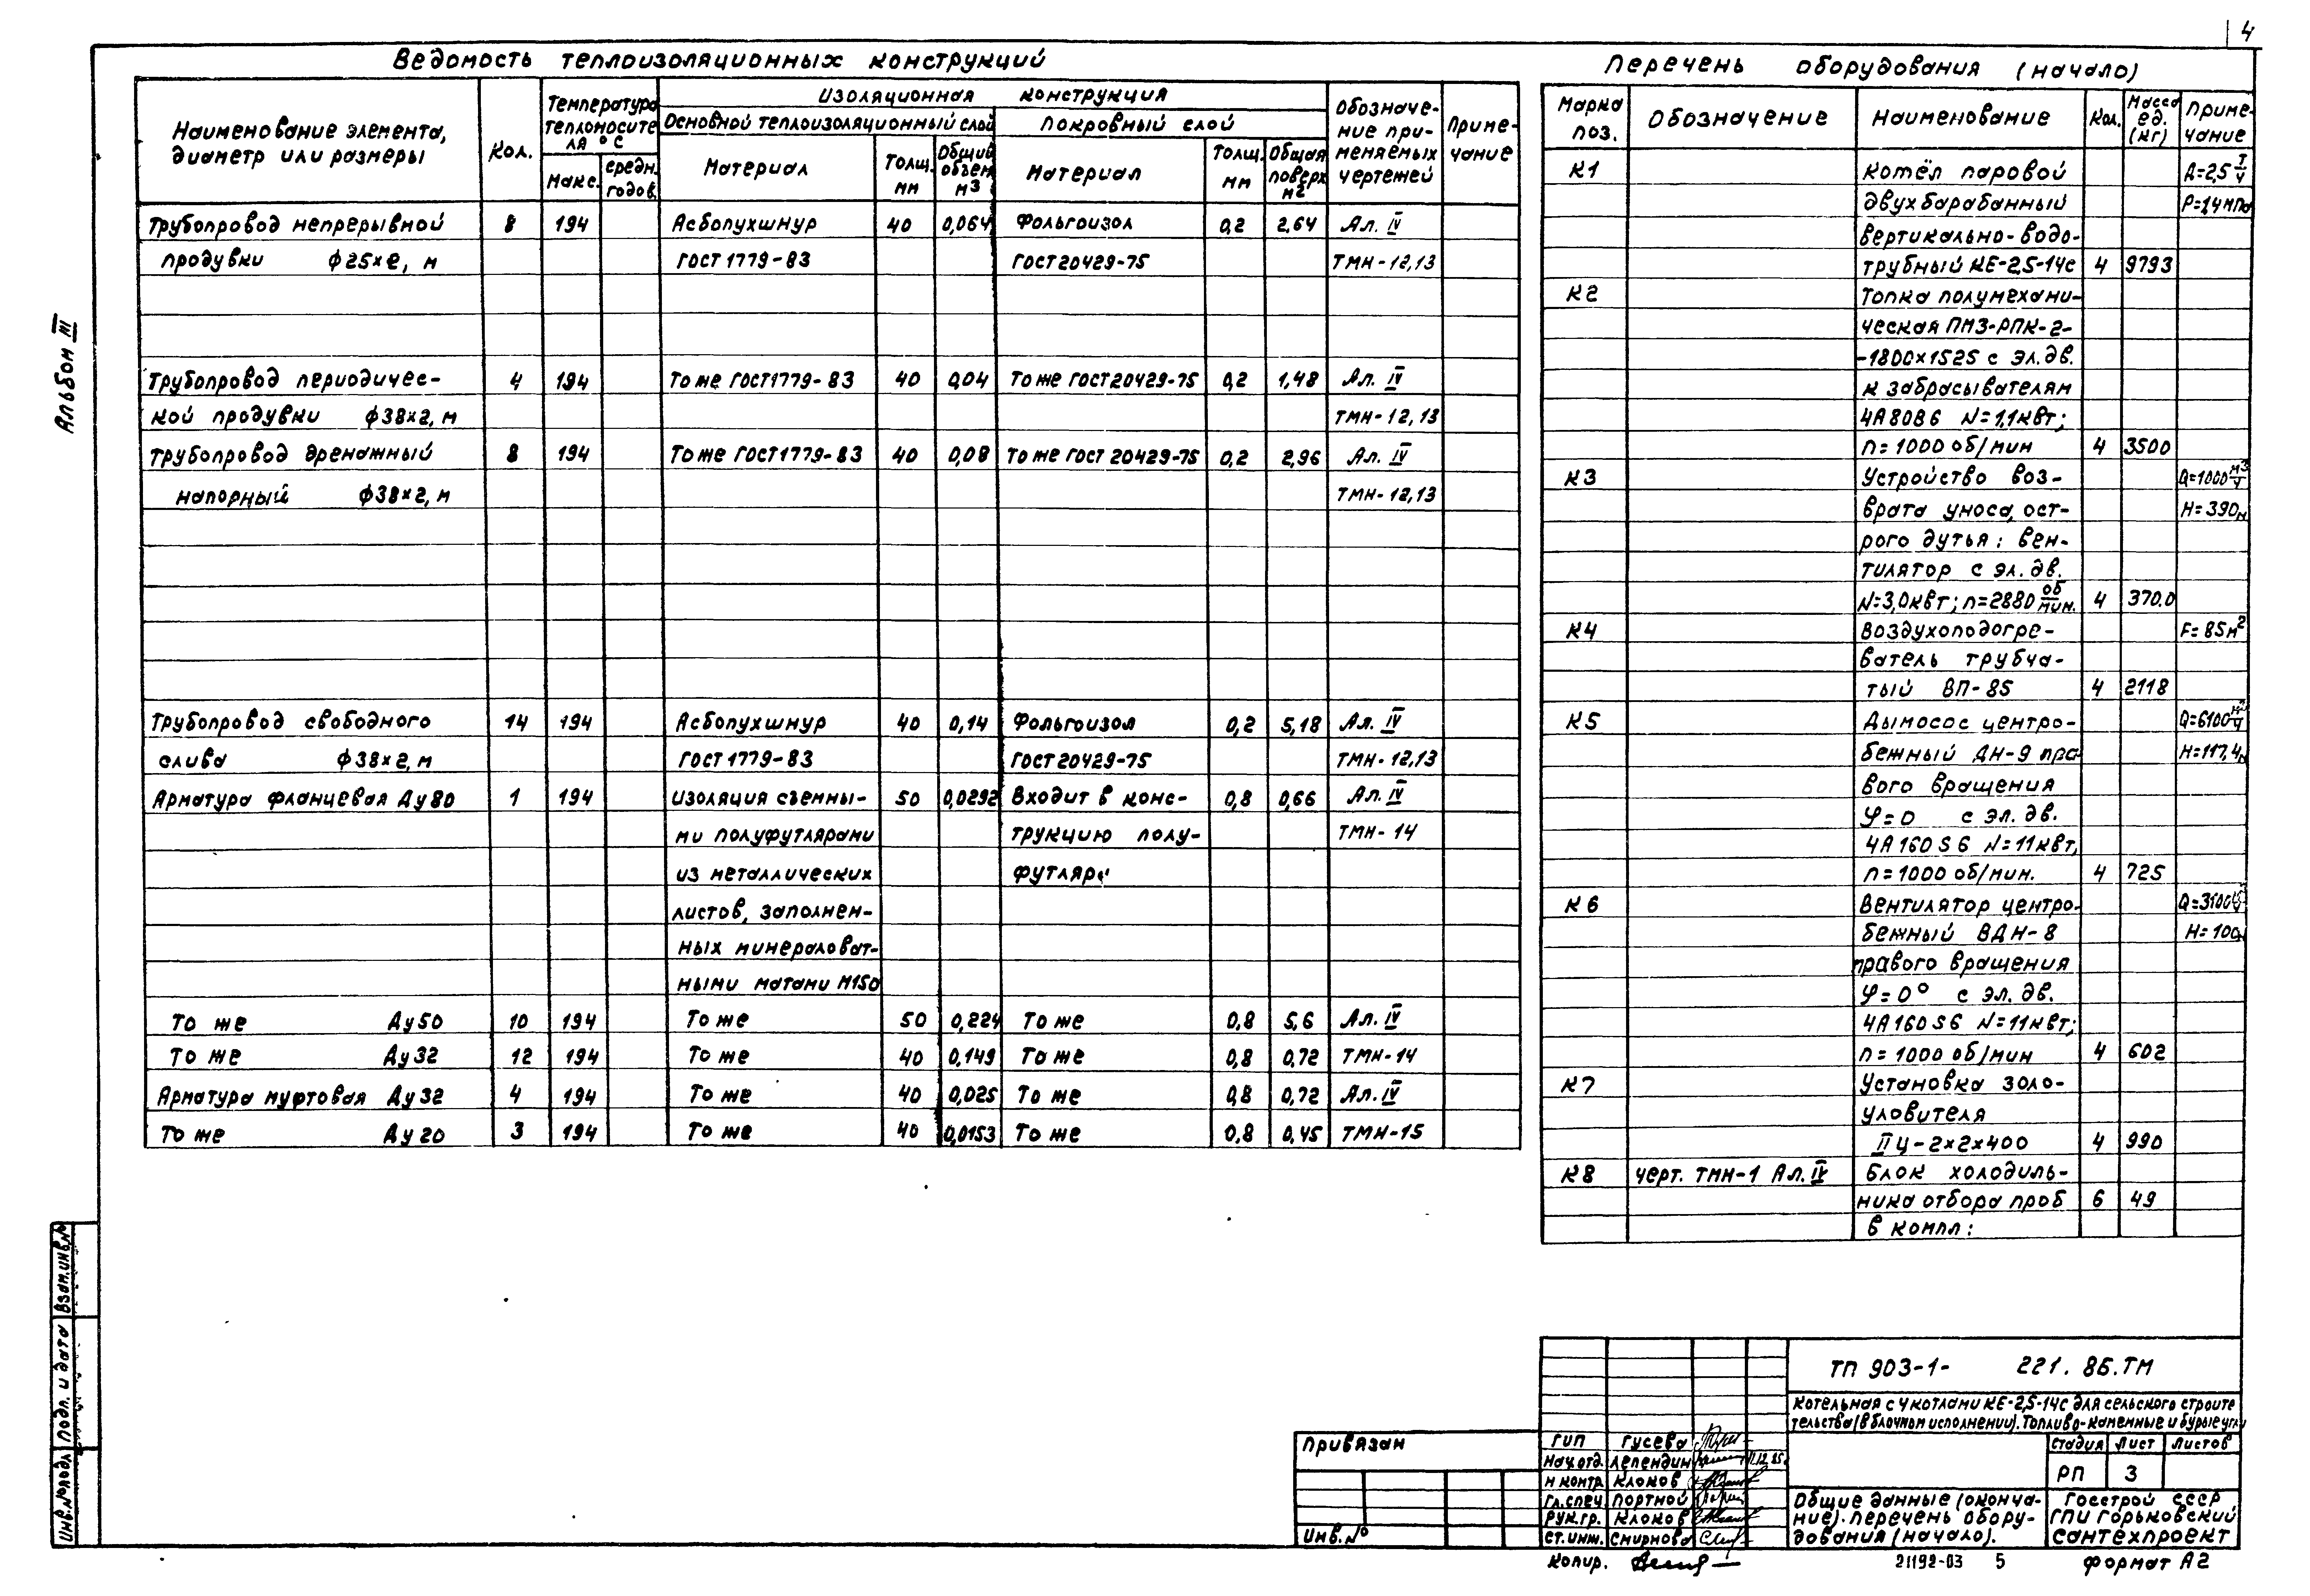 4
Ведомость теплоизоляционных конструкций
Наименование элемента, диаметр или размеры
Кол.
Температура теплоносителя °С
Макс.
средн. годов.
Изоляционная конструкция
Основной теплоизоляционный слой
Покровный слой
Материал
Толщ. мм
Общий объем м3
Материал
Толщ. мм
Общая поверх м2
Обозначе-ние при-меняемых чертежей
Приме-чание
Трубопровод непрерывной 8 194 Асбопухшнур 40 0,064 Фольгоизол 0,2 2,64 Ал. IV
продувки ф25×2, м ГОСТ 1779-83 ГОСТ 20429-75 ТМН-12,13
Трубопровод периодичес- 4 194 То же ГОСТ 1779-83 40 0,04 То же ГОСТ 20429-75 0,2 1,48 Ал. IV
кой продувки ф38×2, м ТМН-12,13
Трубопровод дренажный 8 194 То же ГОСТ 1779-83 40 0,08 То же ГОСТ 20429-75 0,2 2,96 Ал. IV
напорный ф38×2, м ТМН-12,13
Трубопровод свободного 14 194 Асбопухшнур 40 0,14 Фольгоизол 0,2 5,18 Ал. IV
слива ф38×2, м ГОСТ 1779-83 ГОСТ 20429-75 ТМН-12,13
Арматура фланцевая Ду80 1 194 Изоляция съемны- 50 0,0292 Входит в конс- 0,8 0,66 Ал. IV
ми полуфутлярами трукцию полу- ТМН-14
из металлических футляра
листов, заполнен-
ных минераловат-
ными матами М150
То же Ду50 10 194 То же 50 0,224 То же 0,8 5,6 Ал. IV
То же Ду32 12 194 То же 40 0,149 То же 0,8 0,72 ТМН-14
Арматура муфтовая Ду32 4 194 То же 40 0,025 То же 0,8 0,72 Ал. IV
То же Ду20 3 194 То же 40 0,0153 То же 0,8 0,45 ТМН-15
Перечень оборудования (начало)
Марка поз.
Обозначение
Наименование
Кол.
Масса ед. (кг)
Приме-чание
К1 Котёл паровой Д=2,5 т/ч
двухбарабанный Р=1,4мПа
вертикально-водо-
трубный КЕ-2,5-14с 4 9793
К2 Топка полумехани-
ческая ПМЗ-РПК-2-
-1800×1525 с эл.дв.
к забрасывателям
4А80В6 N=1,1кВт;
n=1000 об/мин 4 3500
К3 Устройство воз- Q=1000 м3/ч
врата уноса, ост- Н=390м
рого дутья: вен-
тилятор с эл.дв.
N=3,0кВт; n=2880 об/мин. 4 370.0
К4 Воздухоподогре- F=85м2
ватель трубча-
тый ВП-85 4 2118
К5 Дымосос центро- Q=6100 м3/ч
бежный ДН-9 пра- Н=117,4м
вого вращения
φ=0 с эл.дв.
4А160S6 N=11кВт,
n=1000 об/мин. 4 725
К6 Вентилятор центро- Q=3100
бежный ВДН-8 Н=100м
правого вращения
φ=0° с эл.дв.
4А160S6 N=11кВт;
n=1000 об/мин 4 602
К7 Установка золо-
уловителя
IIЦ-2×2×400 4 990
К8 черт. ТМН-1 Ал. IV Блок холодиль-
ника отбора проб 6 49
в компл:
Альбом III
Взам.инв.№
Подп. и дата
Инв.№подл
Привязан
Инв.№
ТП 903-1- 221.86.ТМ
Котельная с 4 котлами КЕ-2,5-14с для сельского строите
тельства (в блочном исполнении). Топливо-каменные и бурые угли
ГИП Гусева
Нач.отд. Лепендин 11.12.85
Н контр Клоков
Гл.спец Портной
Рук.гр. Клоков
Ст.инж. Смирнова
Стадия Лист Листов
РП 3
Общие данные (оконча-
ние). Перечень обору-
дования (начало).
Госстрой СССР
ГПИ Горьковский
Сантехпроект
Копир.
21192-03 5
Формат А2